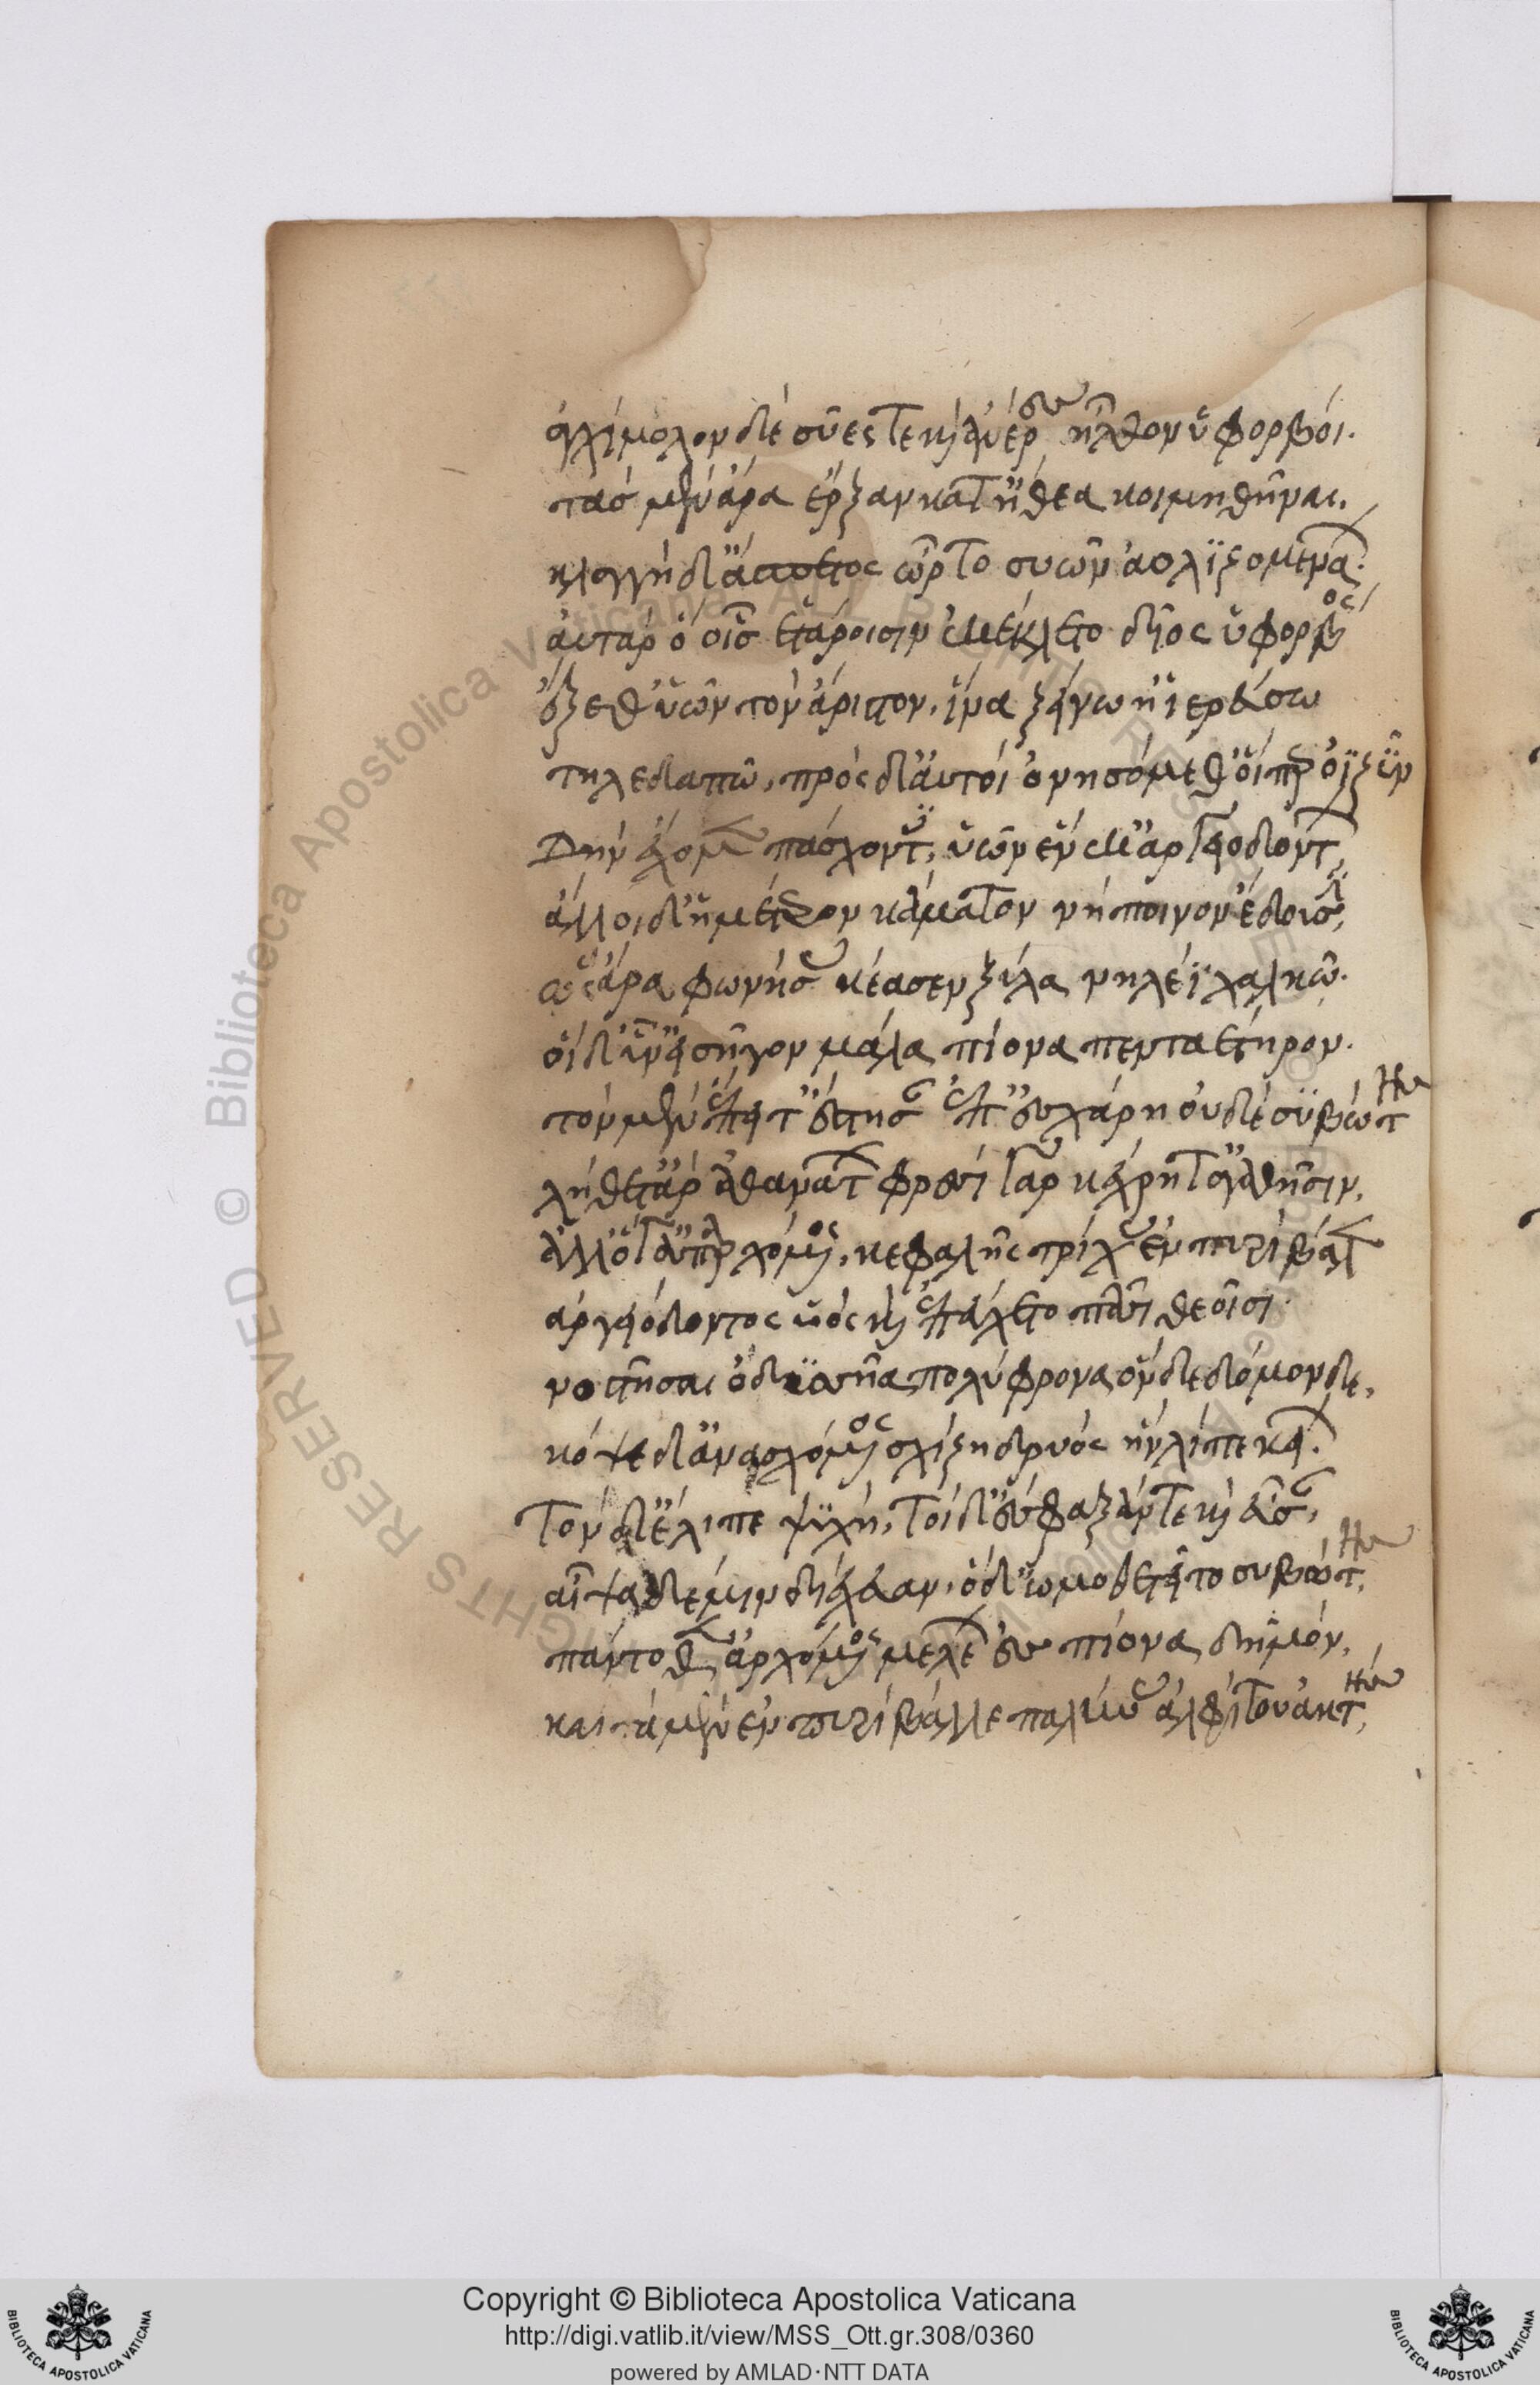 ἀγχίμολον δὲ σύες τε καὶ ἀνέρες ἦλθον ὑφορβοί.
τὰς μὲν ἄρα ἔρξαν κατ' ἤθεα κοιμηθῆναι.
κλαγγὴ δ' ἄσπετος ὦρτο συῶν αὐλιζομενάων.
αὐτὰρ ὁ οἷς ἑτάροισιν ἐκέκλετο δῖος ὑφορβός
ἄξεθ' ὑῶν τὸν ἄριστον, ἵνα ξείνω ἱερεύσω
τηλεδαπῶ, πρὸς δ' αὐτοὶ ὀνησόμεθ' οἵπερ ὀϊζὺν
δὴν ἔχομεν πάσχοντες, ὑῶν ἕνεκ' ἀργιοδόντων
ἄλλοι δ' ἡμέτερον κάματον νήποινον ἔδουσιν,
ὣς ἄρα φωνήσας κέασε ξύλα νηλέϊ χαλκῶ.
οἱ δ' ὗν εἰσῆγον μάλα πίονα πενταέτηρον.
τὸν μὲν ἔπειτ' ἔστησαν ἐπ' ἐσχάρη οὐδὲ συβώτην
λήθετ' ἄρ' ἀθανάτων φρεσὶ γὰρ κέχρητ' ἀγαθῆσιν.
ἀλλ' ὅγ' ἀπαρχόμενος, κεφαλῆς τρίχας ἐν πυρὶ βάλλεν
ἀργιόδοντος ὑὸς καὶ ἐπεύχετο πᾶσι θεοῖσι
νοστῆσαι ὀδυσῆα πολύφρονα ὅνδε δόμονδε,
κόψε δ' ἀνασχόμενος σχίζη δρυὸς ἣν λίπε κείων.
τὸν δ' ἔλιπε ψυχή, τοὶ δ' ἔσφαξάν τε καὶ εὗσαν,
αἶψα δέ μιν διέχευαν, ὁ δ' ὠμοθετεῖτο συβώτης,
πάντοθεν ἀρχόμενος μελέων ἐς πίονα δημόν,
καὶ τὰ μὲν ἐν πυρὶ βάλλε παλύνας ἀλφίτου ἀκτῆ,
Copyright © Biblioteca Apostolica Vaticana
http://digi.vatlib.it/view/MSS_Ott.gr.308/0360
powered by AMLAD·NTT DATA